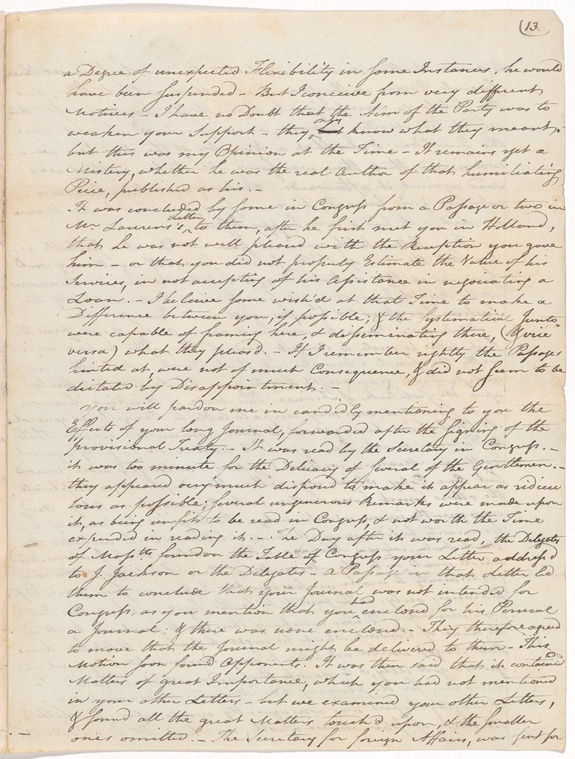 13
a Degree of unexpected Flexibility in some Instances, he would
have been suspended – But I conceive from very different
Motives – I have no Doubt that the Aim of the Party was to
weaken your Support – they only know what they meant,
but this was my Opinion at the Time – It remains yet a
Mistery, whether he was the real Author of that humiliating
Peice, published as his. –
It was concluded by some in Congress from a Passage or two in
Mr Laurens's Letter to them, after he first met you in Holland,
that he was not well pleased with the Reception you gave
him – or that, you did not properly Estimate the Value of his
Services, in not accepting of his Assistance in negotiating a
Loan. – I beleive some wish'd at that Time to make a
Difference between you, if possible; & the Systematical Junto
were capable of framing here, & disseminating there, (& vice
versa) what they pleas'd. – If I remember rightly the Passages
hinted at, were not of much Consequence, & did not seem to be
dictated by Disappointment. –
You will pardon me in candidly mentioning to you the
Effects of your long Journal, forwarded after the signing of the
provisional Treaty. – It was read by the Secretary in Congress. –
it was too minute for the Delicacy of several of the Gentlemen. –
they appeared very much dispos'd to make it appear as ridicu
lous as possible; several ungenerous Remarks were made upon
it, as being unfit to be read in Congress, & not worth the Time
expended in reading it. – The Day after it was read, the Delegates
of Massts found on the Table of Congress your Letter address'd
to J. Jackson or the Delegates – a Passage in that Letter led
them to conclude that your Journal was not intended for
Congress, as you mention that you had enclosed for his Perusal
a Journal; & there was none enclosed. – They therefore agreed
to move that the Journal might be delivered to them – This
Motion soon found Opponents. It was then said that it contained
Matters of great Importance, which you had not mentioned
in your other Letters – but we examined your other Letters,
& found all the great Matters touch'd upon, & the smaller
ones omitted. – The Secretary for foreign Affairs, was sent for